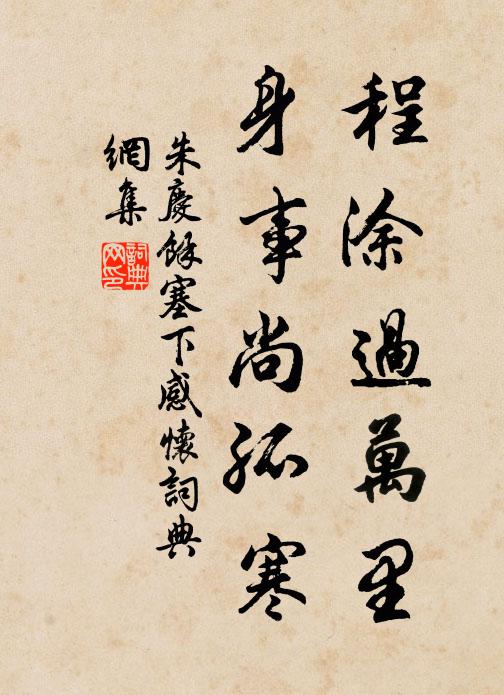 程涂過萬里
身事尚孤寒
朱慶餘塞下感懷詞典
網集
詞典網印